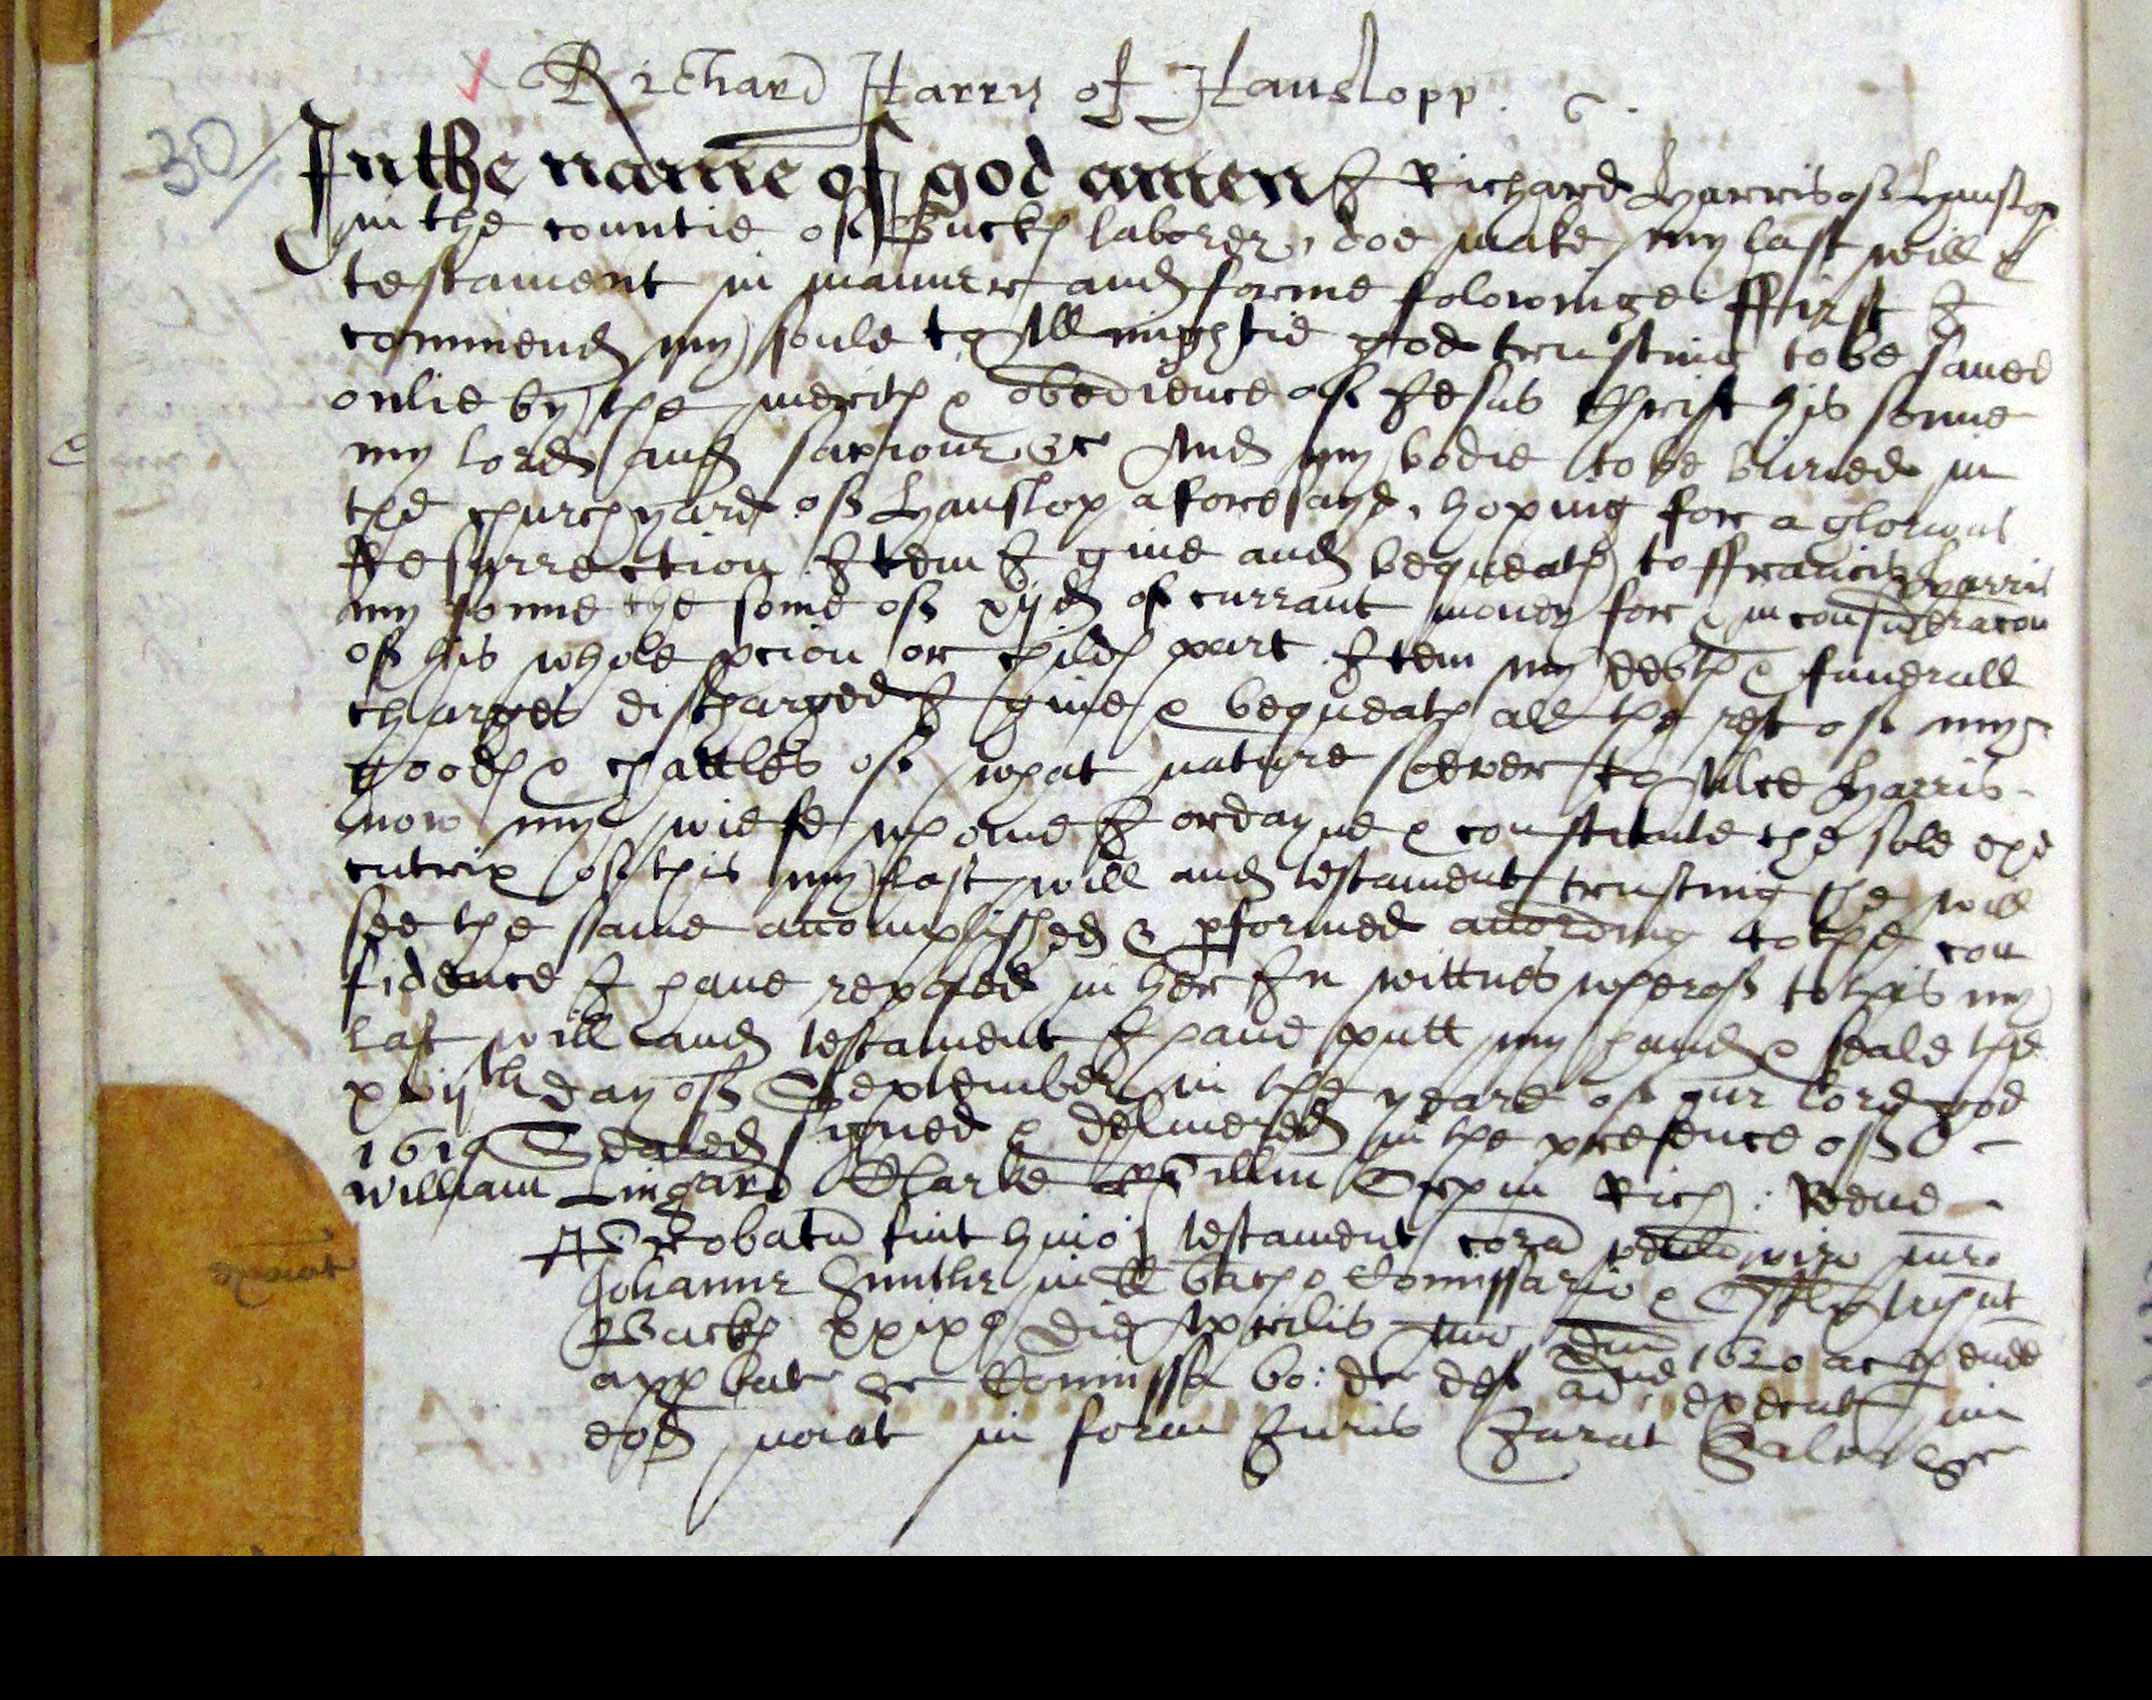 Richard Harrys of Hanslopp
30/
In the name of god amen I Richard Harris of Hanslop
in the countie of Buck laborer, doe make my last will &
testament in manner and forme folowinge ffirst I
commend my soule to Allmightie god trusting to be saved
onlie by the merits & obedience of Jesus Christ his sonne
my lord and saviour &c And my bodie to be buried in
the churchyard of Hanslop aforesayd, hoping for a glorious
Resurrection Item I give and bequeath to ffrancis Harris
my sonne the some of xijd of currant money for & in consideracon
of his whole pcion or childs part Item my debts & funerall
charges discharged I give & bequeath all the rest of my
goods & chattles of what nature soever to Alce Harris
now my wiefe whome I ordayne & constitute the sole exe
cutrix of this my last will and testament trusting she will
see the same accomplished & pformed according to the con
fidence I have reposed in her In wittnes wherof to this my
last will and testament I have putt my hand & seale the
xvijth day of September in the yeare of our lord god
1619 Sealed signed & delivered in the presence of
William Lingard Clarke Willm Rich: Reve
Probatu fuit huioi testament cora veli viro mro
Johanne Smithe in ll bach Comissario &
Buck xxix die Aprilis Ano dni 1620 ac p eunde
approbat &c Comissa bo: &c def ad execut in
eod noiat in form Juris Jurat Salvo &c